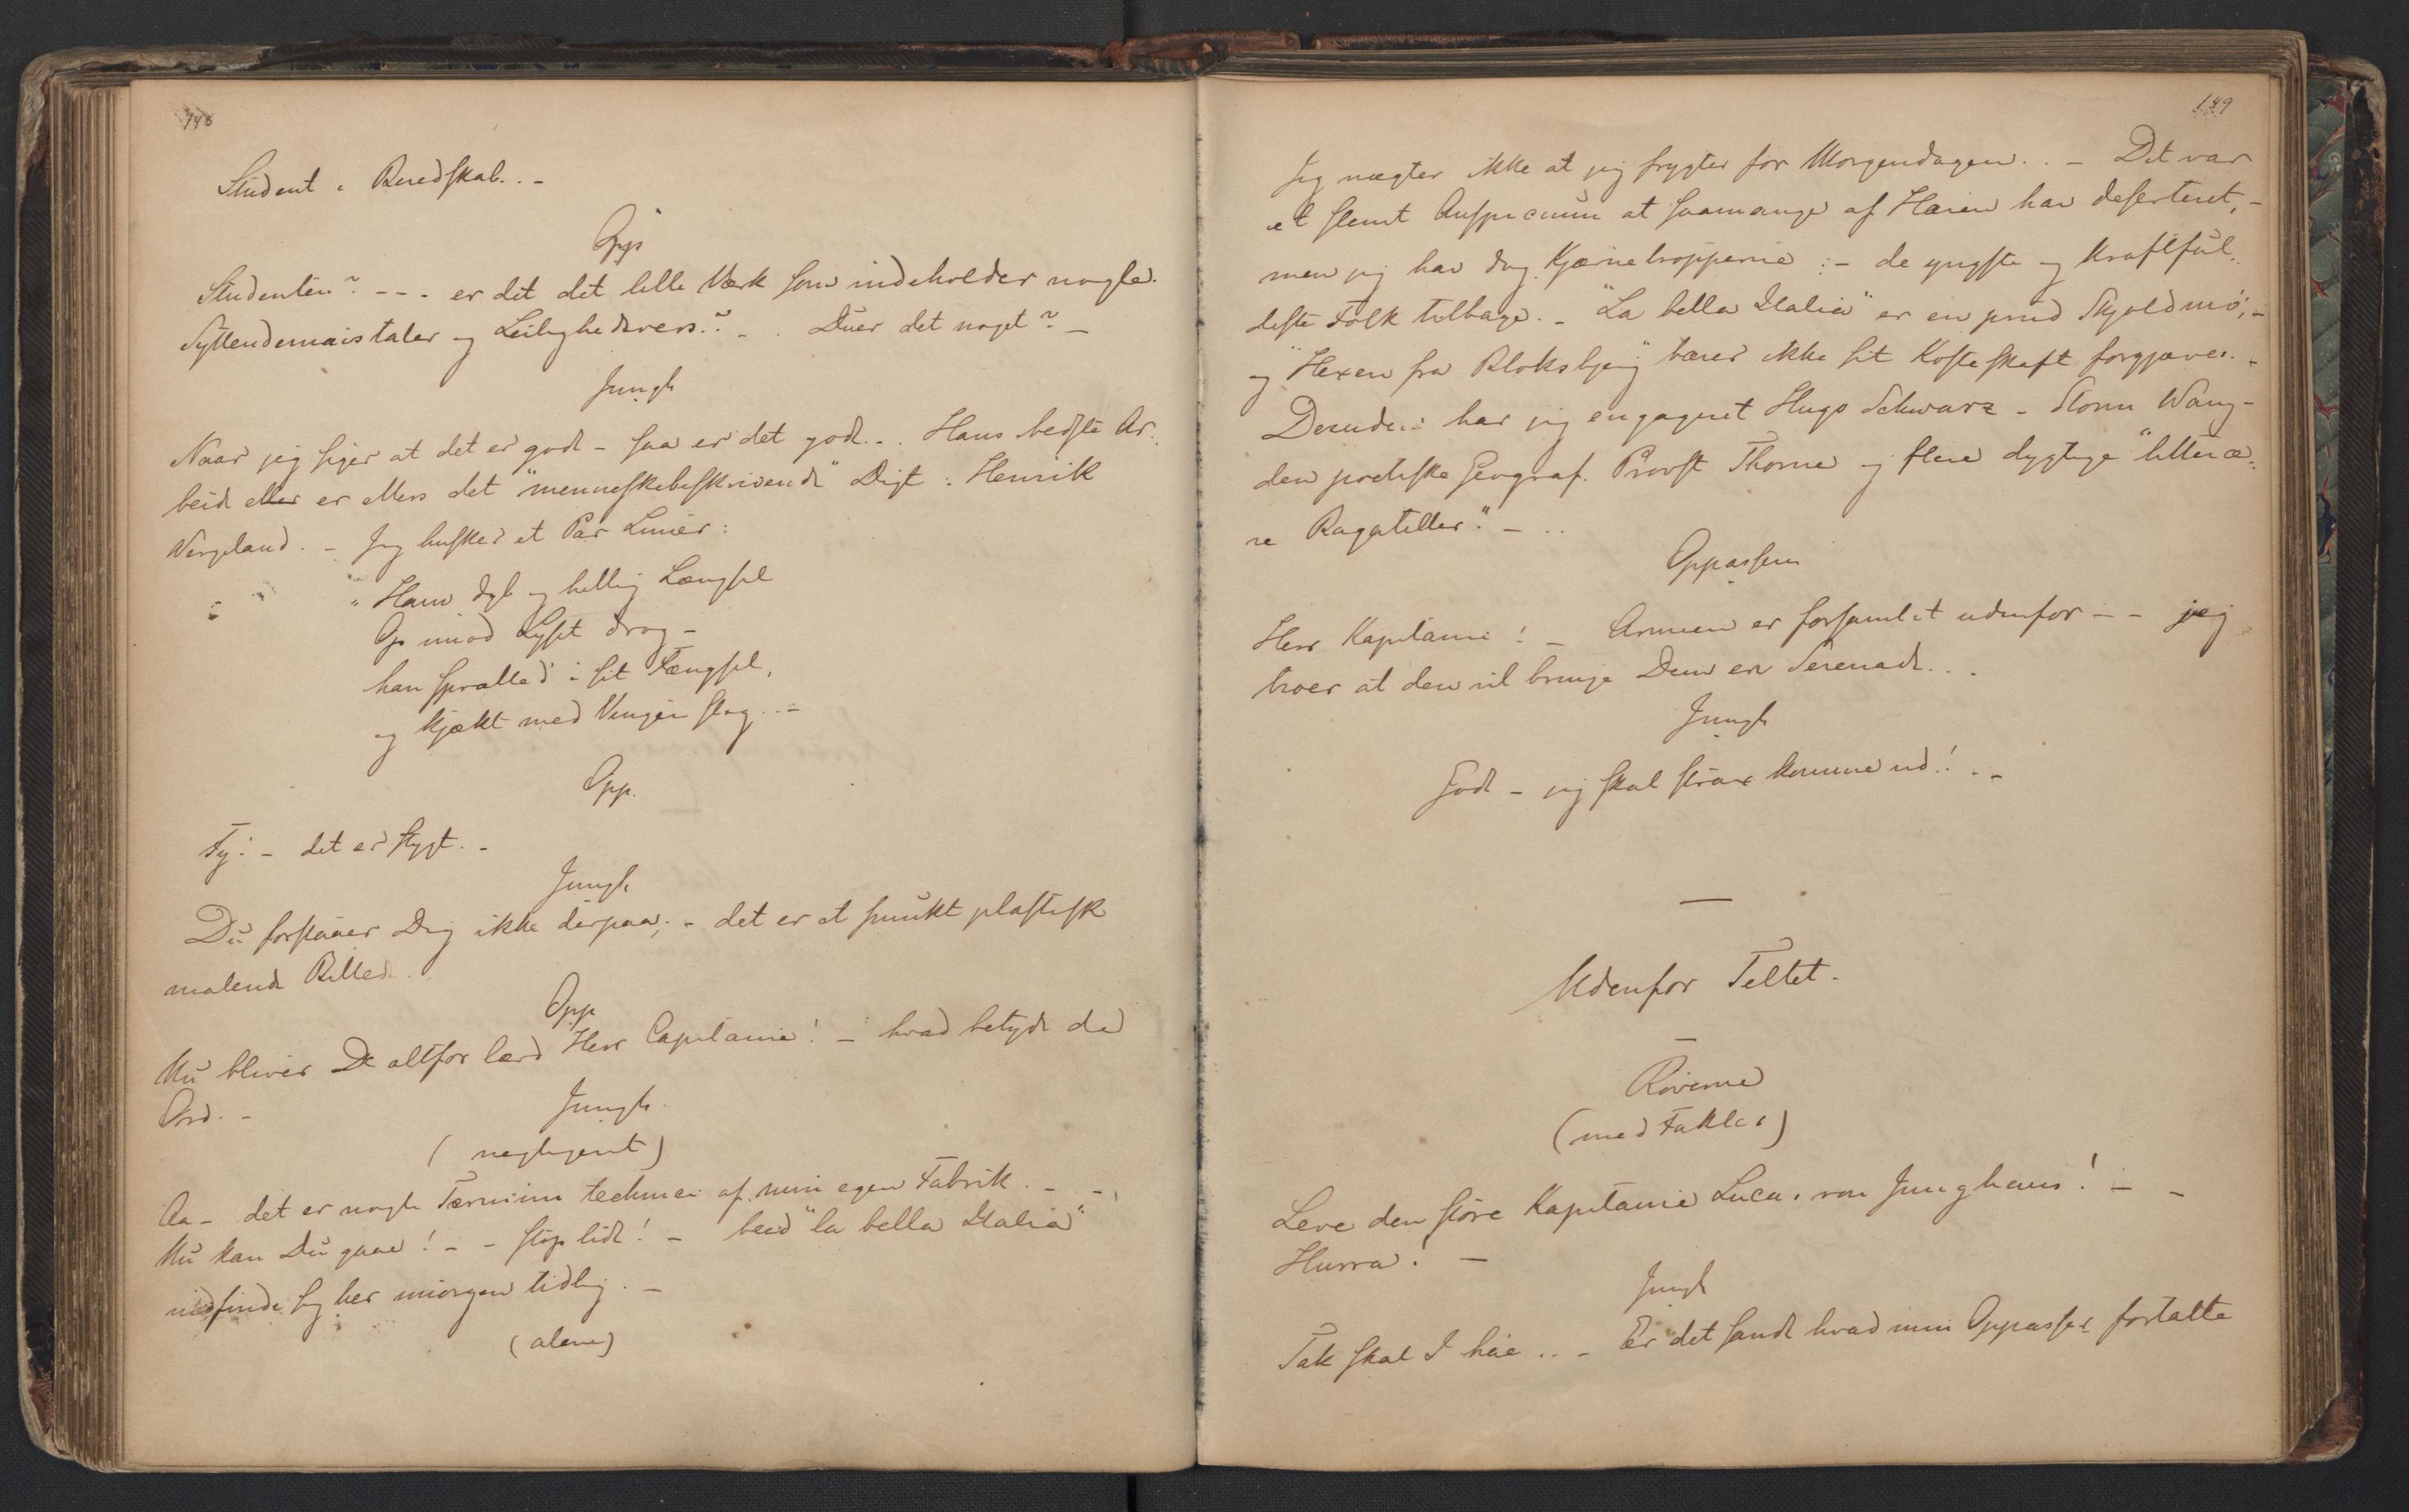 148
Student i Beredskab. . -
Opp
Studenten? - - - er det det lille Værk som indeholder nogle
Syttendemaistaler og Leilighedsvers? - . Duer det noget? -
Jungh
Naar jeg siger at det er godt - saa er det godt . . Hans bedste Ar-
beid eller er ellers det "menneskebeskrivende" Digt: Henrik
Wergeland. - Jeg husker et Par Linier:
"Ham dyb og hellig Længsel
Op imod Lyset drog -
han sprælled' i sit Fængsel,
og kjækt med Vingen slog . . -
Opp.
Fy! - det er stygt. -
Jungh
Du forstaaer Dig ikke derpaa; - det er et smukt plastisk
malende Billed.
Opp
Nu bliver De altfor lærd Herr Capitaine! - hvad betyde de
Ord. -
Jungh.
(negligent)
Aa - det er nogle Terminni technici af min egen Fabrik. - -
Nu kan Du gaae! - - stop lidt! - beed "la bella Italia"
indfinde sig her imorgen tidlig. -
(alene)
149
Jeg nægter ikke at jeg frygter for Morgendagen . . - Det var
et slemt Auspicium at saamange af Hæren har deserteret, -
men jeg har dog Kjærnetropperne: - de yngste og kraftful-
deste Folk tilbage. - "La bella Italia" er en prud Skjoldmø, -
og "Hexen fra Bloksbjerg" bærer ikke sit Kosteskaft forgjæves. -
Desuden har jeg engageret Hugo Schwarz - Storm Wang -
den poetiske Geograf. Provst Thorne og flere dygtige "litteræ-
re Bagateller". - . .
Oppasseren
Herr Kapitaine! - Armeen er forsamlet udenfor - - jeg
troer at den vil bringe Dem en Serenade. . .
Jungh
Godt - jeg skal strax komme ud! . . -
—
Udenfor Teltet.
—
Røverne
(med Fakler)
Leve den store Kapitaine Lucas von Junghans! - -
Hurra! -
Jungh
Tak skal I have . . - Er det sandt hvad min Oppasser fortalte